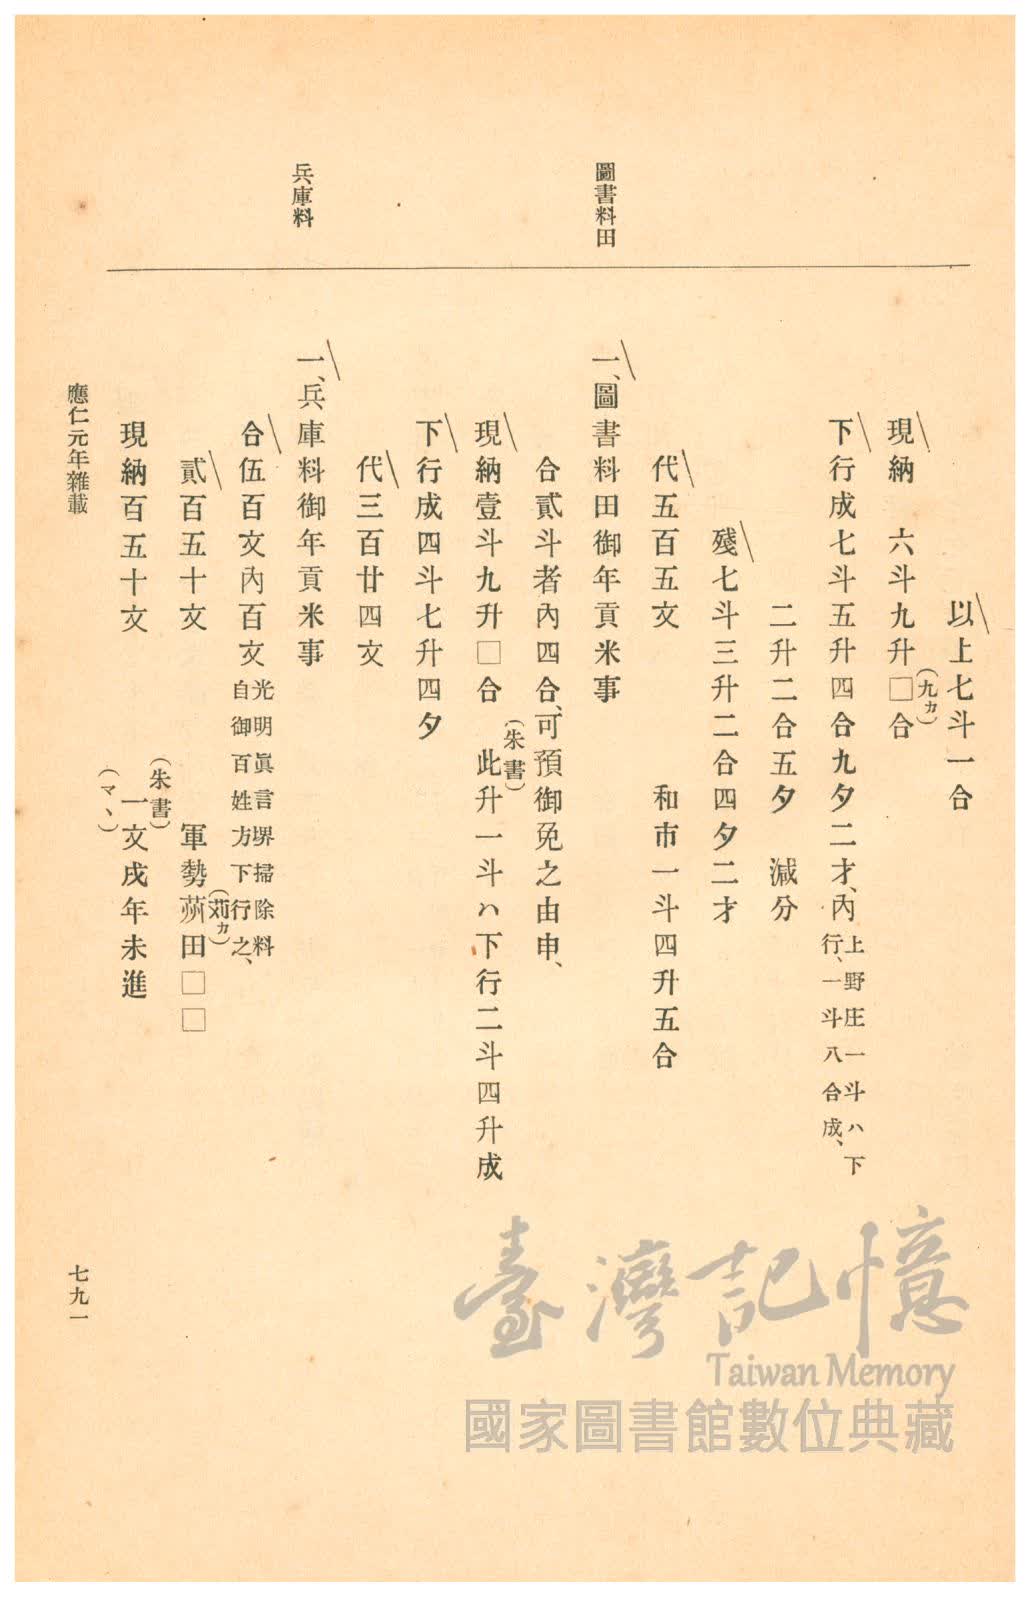 圖書料田
兵庫料
以上七斗一合
現納　六斗九升□(九カ)合
下行成七斗五升四合九夕二才、內上野庄一斗ハ下
行、一斗八合成、
二升二合五夕　減分
殘七斗三升二合四夕二才
代五百五文　和市一斗四升五合
一、圖書料田御年貢米事
合貳斗者內四合、可預御免之由申、
現納壹斗九升□合　(朱書)此升一斗ハ下行二斗四升成
下行成四斗七升四夕
代三百廿四文
一、兵庫料御年貢米事
合伍百文內百文光明眞言堺掃除料
自御百姓方下行之、
貳百五十文　軍勢蒴(苅カ)田□□
現納百五十文　(朱書)一文戌年未進(マヽ)
應仁元年雜載
七九一
臺灣記憶
Taiwan Memory
國家圖書館數位典藏